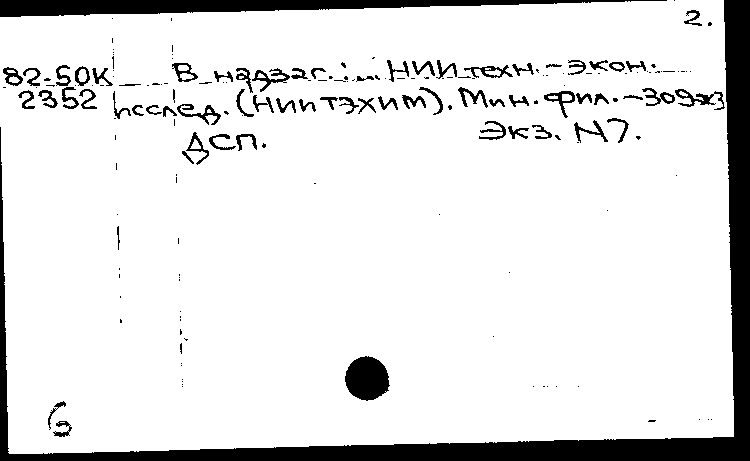 2.
82-50К В надзаг.: ... НИИ техн.-экон.
2352 исслед. (НИИТЭХИМ). Мин. фил. -309экз
ДСП. Экз. N7.
6